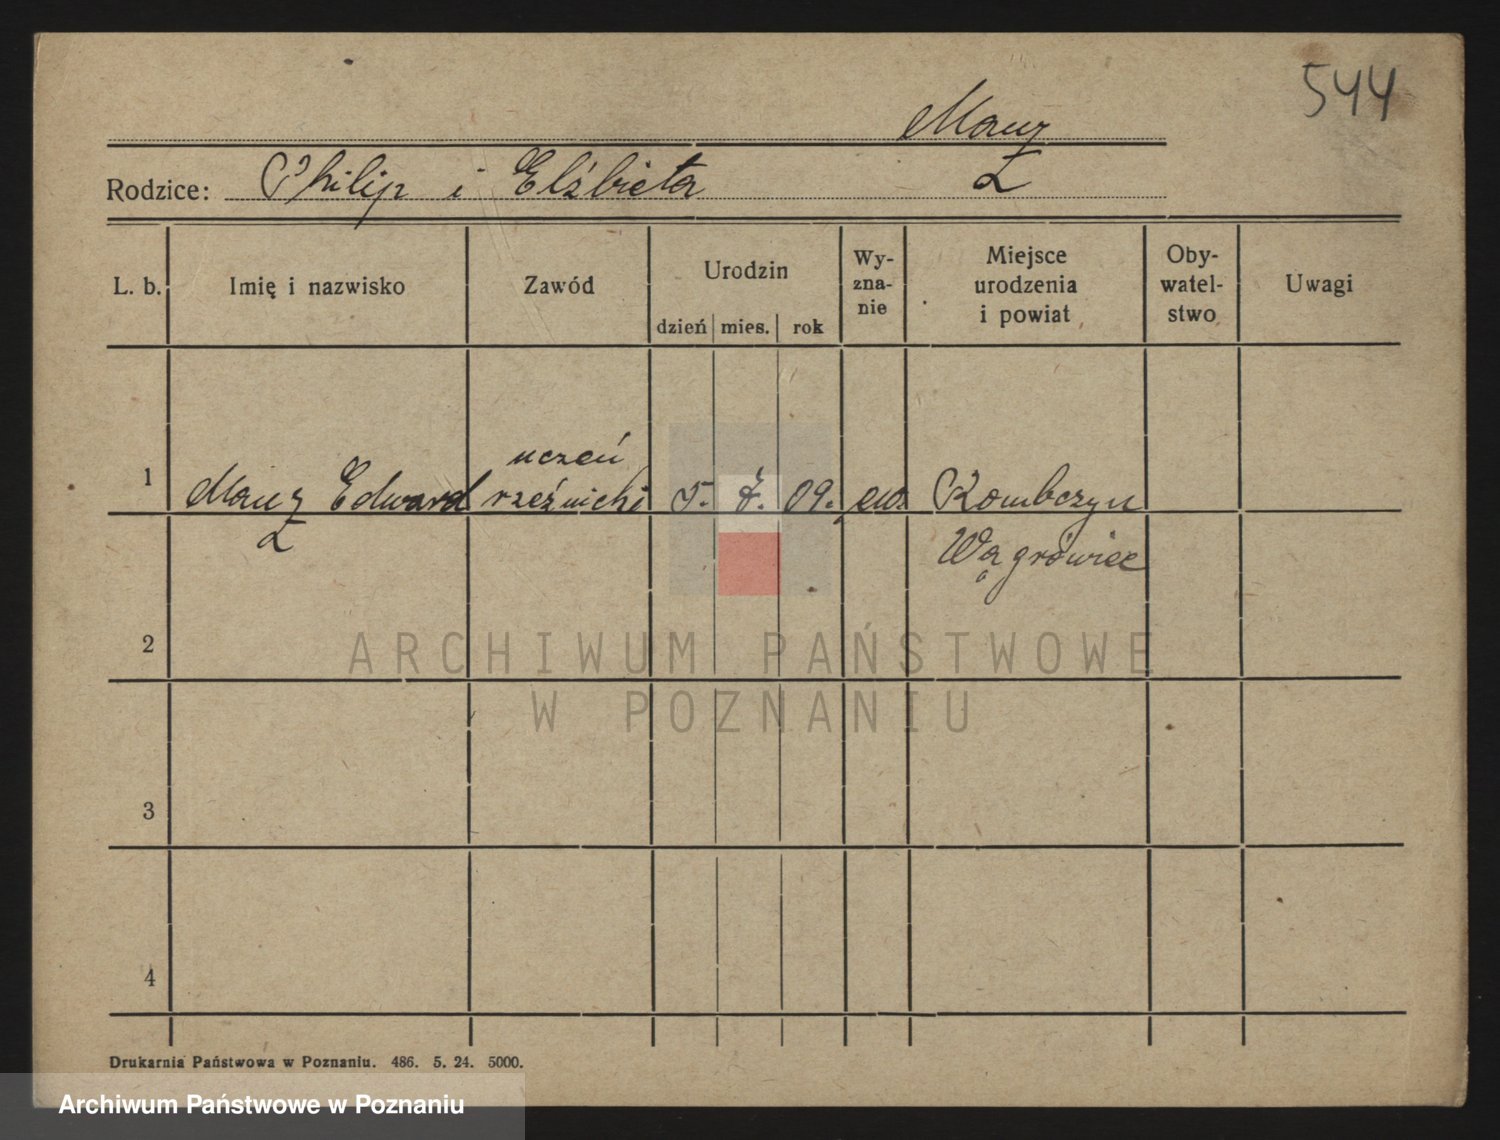 544
Manz
Rodzice: Philip i Elżbieta Z
L. b. Imię i nazwisko Zawód Urodzin Wy-zna-nie Miejsce urodzenia i powiat Oby-watel-stwo Uwagi
dzień mies. rok
uczeń
1 Manz Edward rzeźnicki 5. 8. 09. ew. Kombczyn
Z Wągrówiec
2
ARCHIWUM PAŃSTWOWE
W POZNANIU
3
4
Drukarnia Państwowa w Poznaniu. 486. 5. 24. 5000.
Archiwum Państwowe w Poznaniu